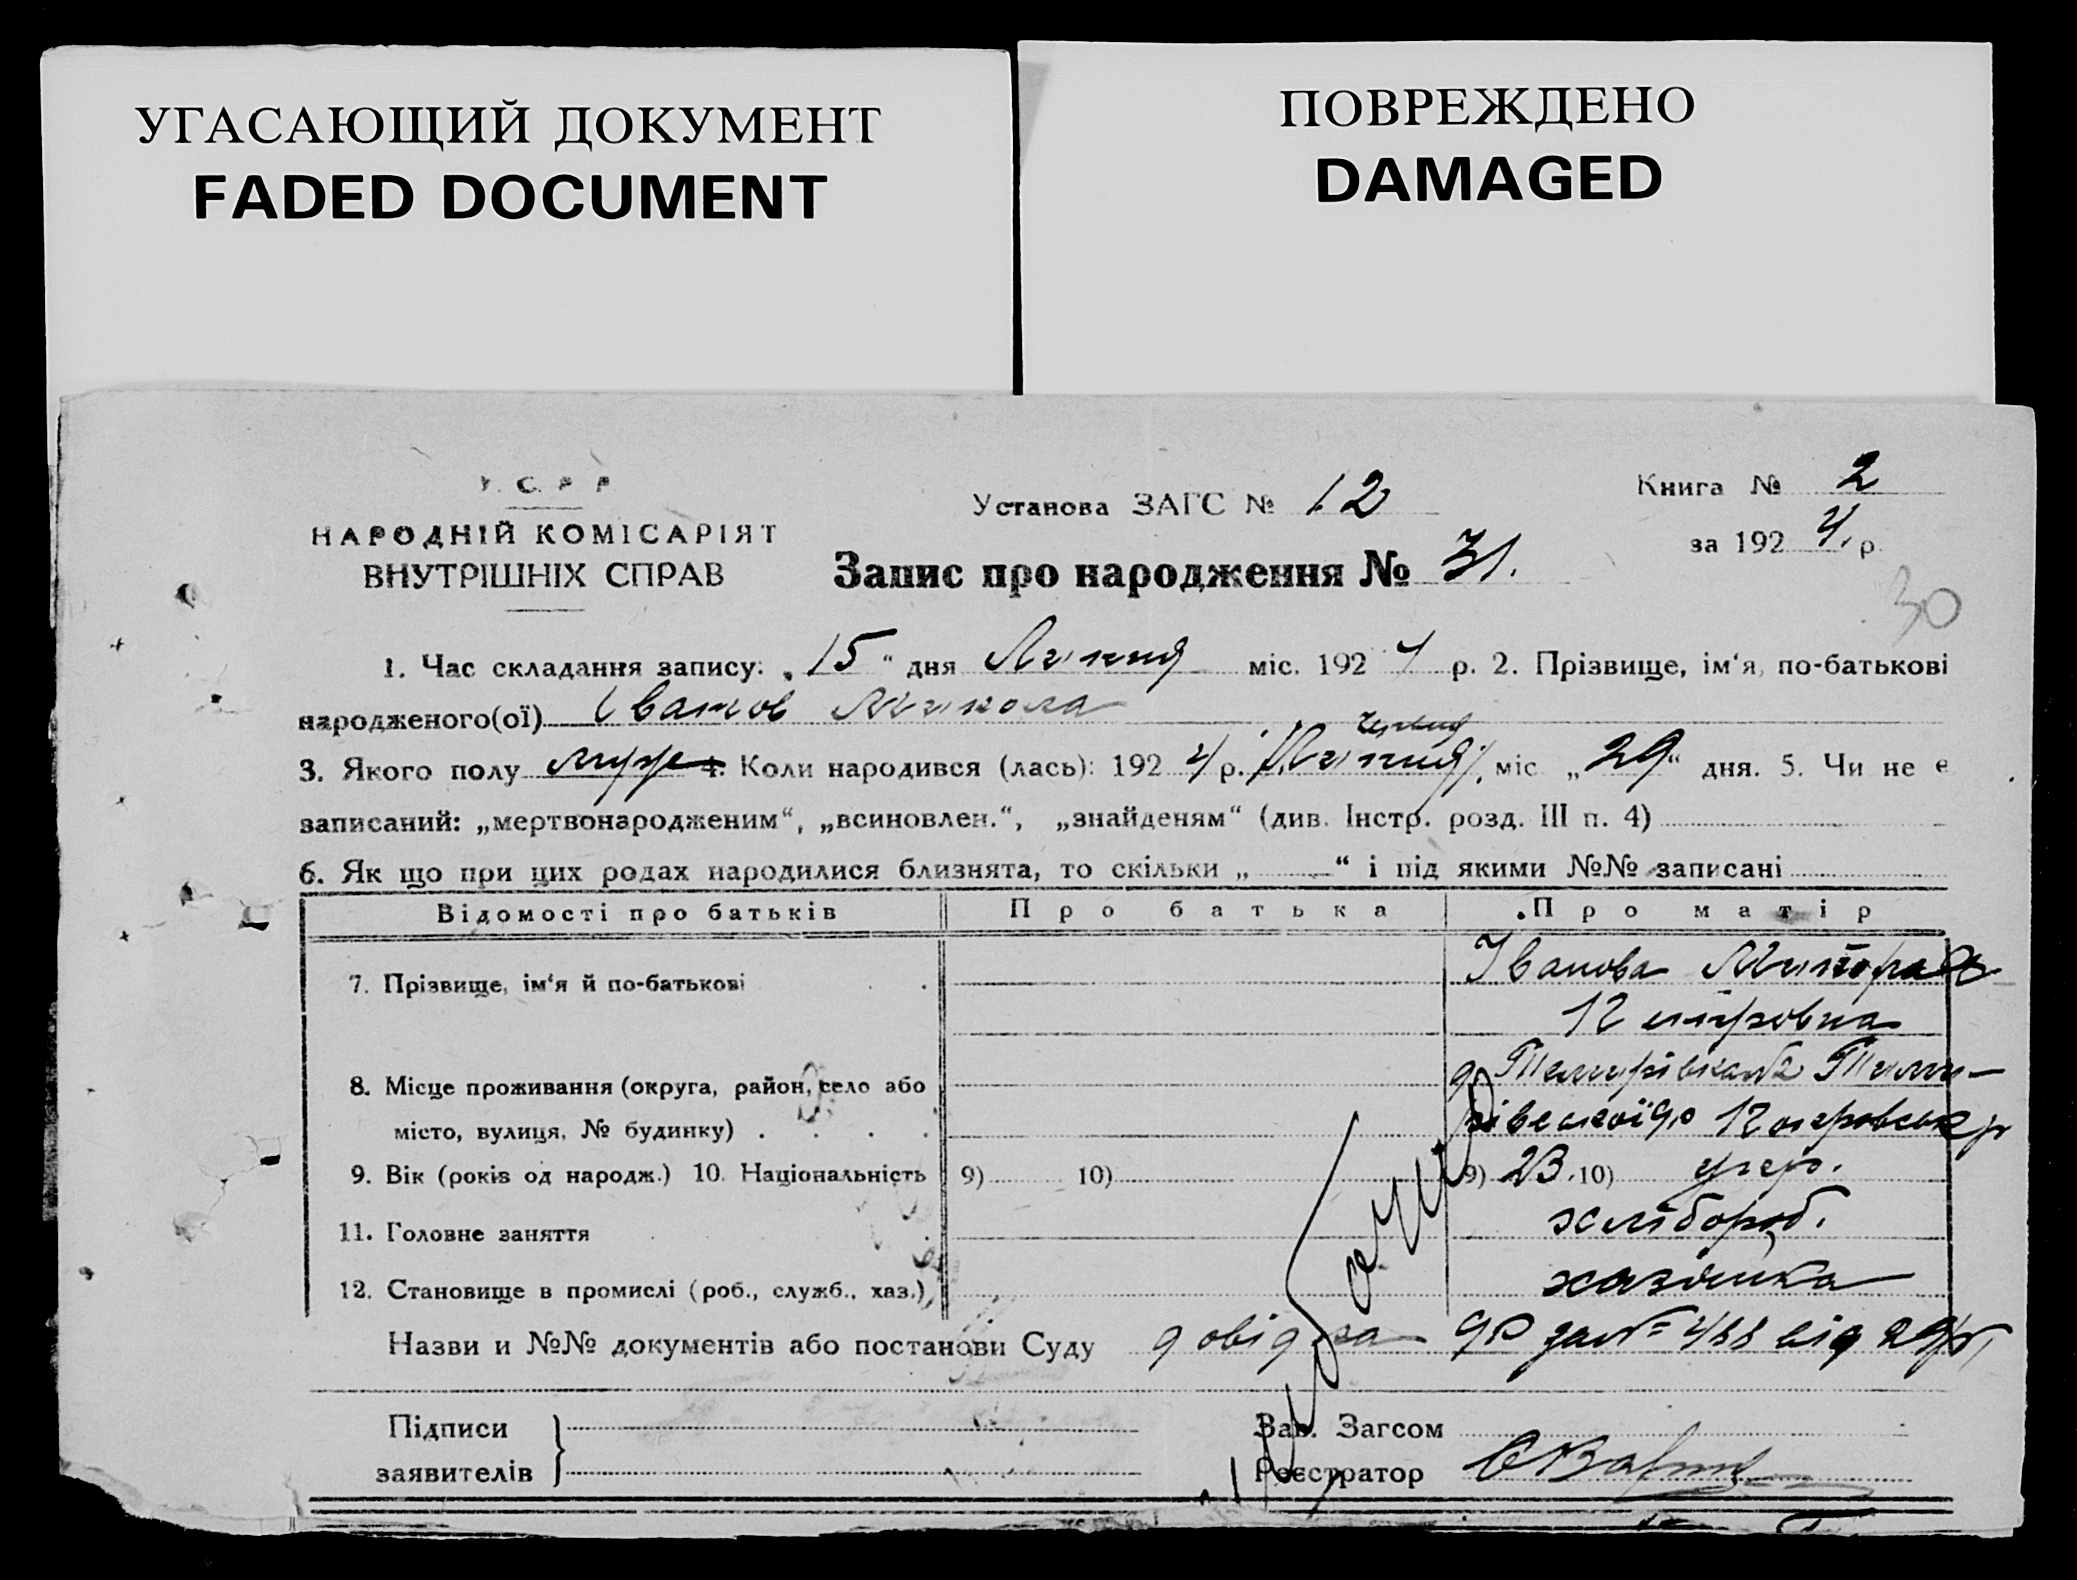 УГАСАЮЩИЙ ДОКУМЕНТ
FADED DOCUMENT
ПОВРЕЖДЕНО
DAMAGED
У. С. Р. Р.
НАРОДНІЙ КОМІСАРІЯТ
ВНУТРІШНІХ СПРАВ
Установа ЗАГС № 12
Книга № 2
за 1924 р.
Запис про народження № 31.
30
1. Час складання запису: „15“ дня Липня міс. 1924 р. 2. Прізвище, ім‘я, по-батькові
народженого(ої) Іванов Микола
3. Якого полу муж 4. Коли народився (лась): 1924 р. (Липня) Червня міс. „29“ дня. 5. Чи не є
записаний: „мертвонародженим“, „всиновлен.“, „знайденям“ (див. Інстр. розд. III п. 4)
6. Як що при цих родах народилися близнята, то скільки „ “ і під якими №№ записані
Відомості про батьків Про батька Про матір
7. Прізвище, ім‘я й по-батькові Іванова
Петровна
8. Місце проживання (округа, район, село або
місто, вулиця, № будинку) Покровськ р
9. Вік (років од народж.) 10. Національність 9) 10) 9) 23. 10) укр.
11. Головне заняття хлібороб.
12. Становище в промислі (роб., служб., хаз.) хазяйка
Назви и №№ документів або постанови Суду довідка за № 488 від
Підписи
заявителів
Зав. Загсом
Реєстратор